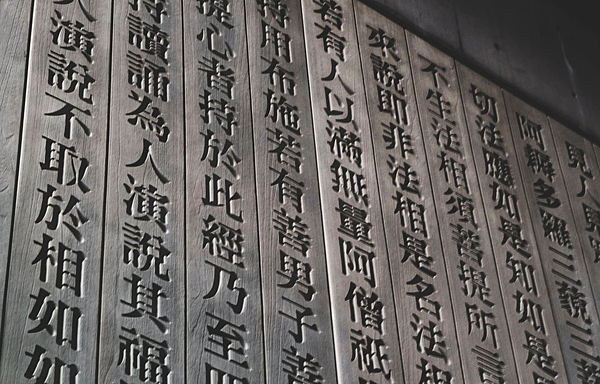 見人見
阿耨多羅三藐三
切法應如是知如是
不生法相須菩提所言
來說即非法相是名法相
若有人以滿無量阿僧祇
持用布施若有善男子善
提心者持於此經乃至四
持讀誦為人演說其福
人演說不取於相如如